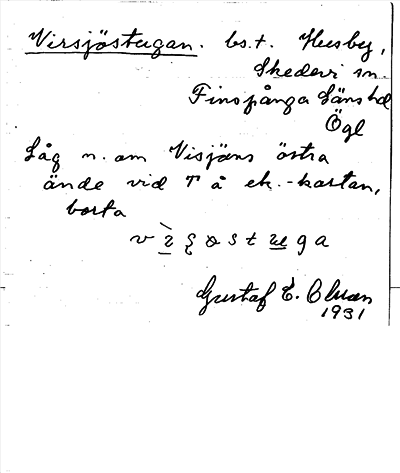 Virsjöstugan. bs.t. Husby,
Skedevi sn.
Finspånga Läns hd
Ögl
Låg n. om Visjöns östra
ände vid T å ek.-kartan,
borta
Gustaf E. Olsson
1931